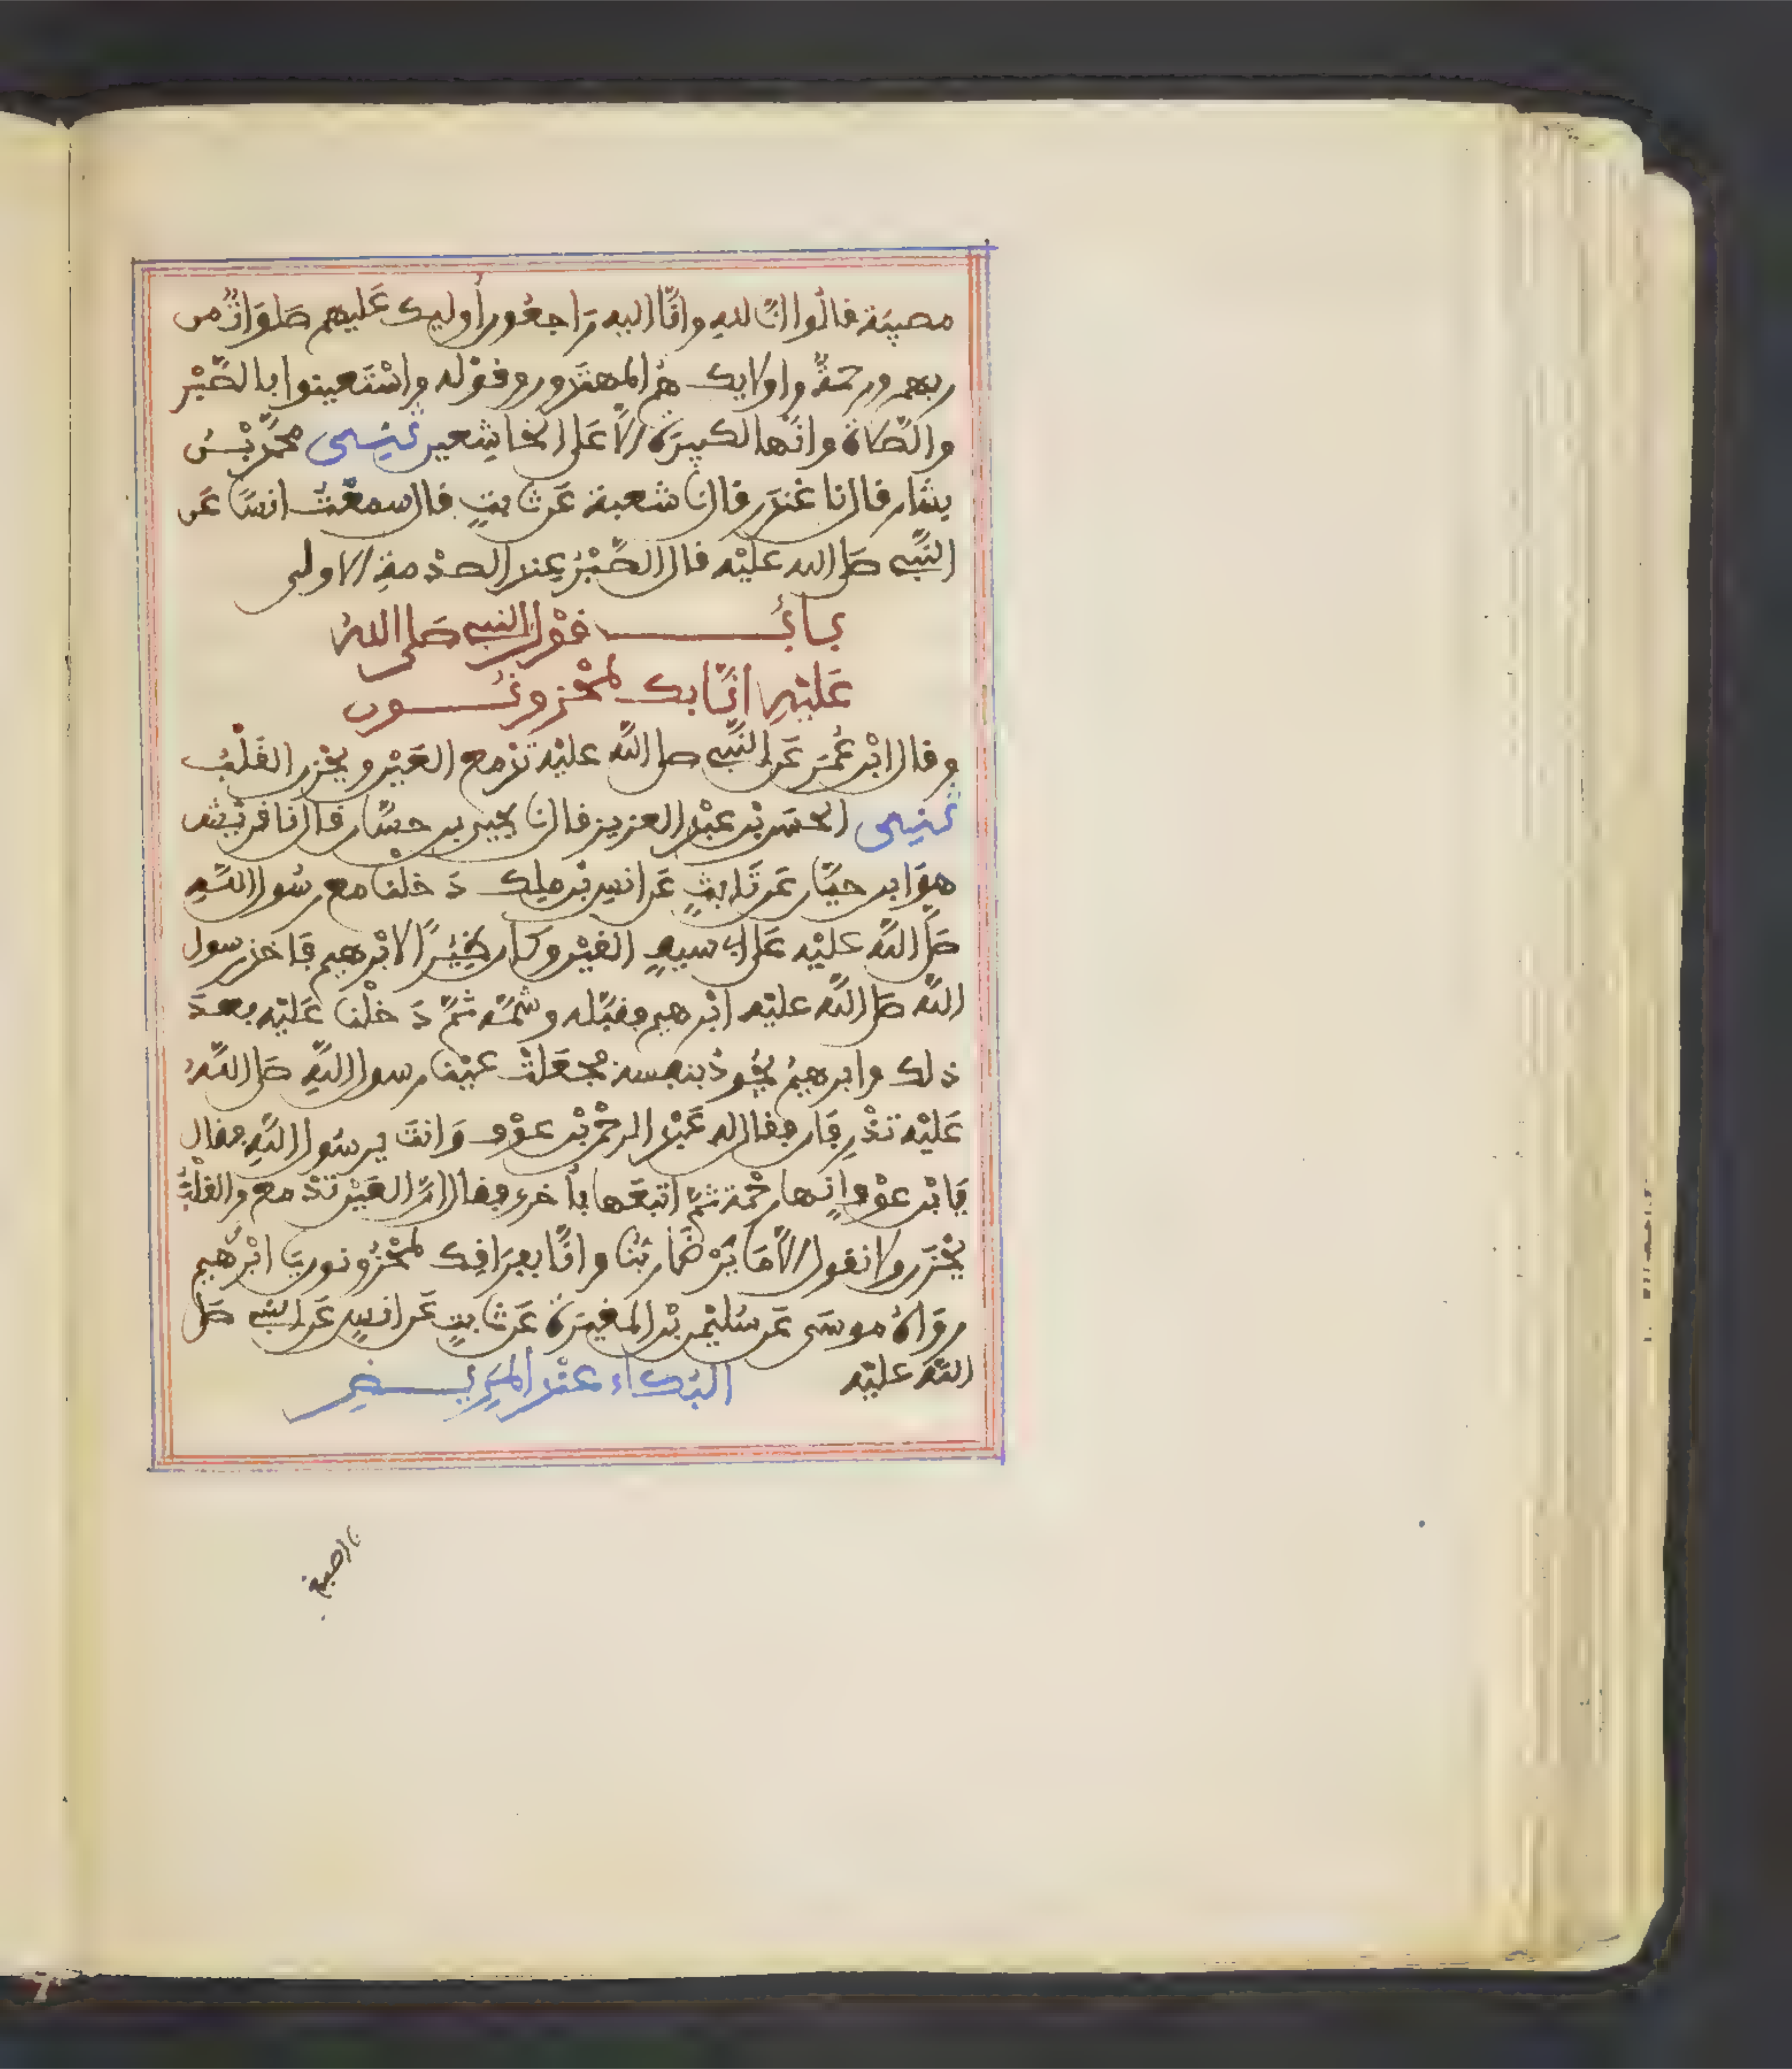 مصيبة قالوا انّا لله وانّا اليه رَاجعُون أوليك عَليهم صَلوَاتٌ من
ربهم ورحمةٌ واولايك هُم المهتدون وقوله واسْتَعينوا بالصَّبْر
والصّلاة وانّها لكبيرَة الّا عَلى الخاشِعين حَدّثني محمّد بْنُ
بشّار قال نا غندَر قال نا شعبة عَن ثابتٍ قال سمعْتُ انسًا عَن
النّبي صَلى الله عليْه قال الصَّبْرُ عِند الصدْمةِ الاولى
بابُ قوْل النبي صَلى اللهُ
عَليْهِ انّا بك لمحْزونُون
وقال ابْن عُمَر عَن النَّبي صلى اللّه عليْه تدْمع العَيْن ويحْزن القَلْبُ
حَدّثني الحسَن بْن عبْد العزيز قال نا يحيى بن حسّان قال نا قريْش
هوَ ابن حيّان عَن ثَابتٍ عَن انس بْن ملِك دَخلنا مع رسُول اللّهِ
صَلى اللّه عليْه عَلى ابي سيفٍ القيْن وكان ظِئْرًا لابْرهيم فَاخذ رسول
اللّه صَلى اللّه عليْه ابْرهيم فقبَّله وشمّه ثمّ دَخلْنا عَليْه بعدَ
ذلك وابرهيمُ يجُودُ بنفسه فجعَلتْ عيْنا رسول اللّهِ صَلى اللّهُ
عَليْه تذْرِفَان فقال له عَبْد الرحْمن بْن عوْف وَانتَ يرسُول اللّهِ فقال
يَابْن عوْف انها رحْمة ثمّ اتبَعَها بأخرى فقال انّ العَيْن تدْمع والقلْبُ
يحْزَن ولا نقول الّا مَا يَرْضَى ربّنا وانّا بفِرَاقِك لمحْزُونون يَا ابْرهيم
روَاهُ موسَى عَن سُليْمن بْن المغيرَة عَن ثابتٍ عَن انسٍ عَن النبي صَلى
اللّه عليْه البُكاء عنْد المَرِيضِ
نا اصبغ